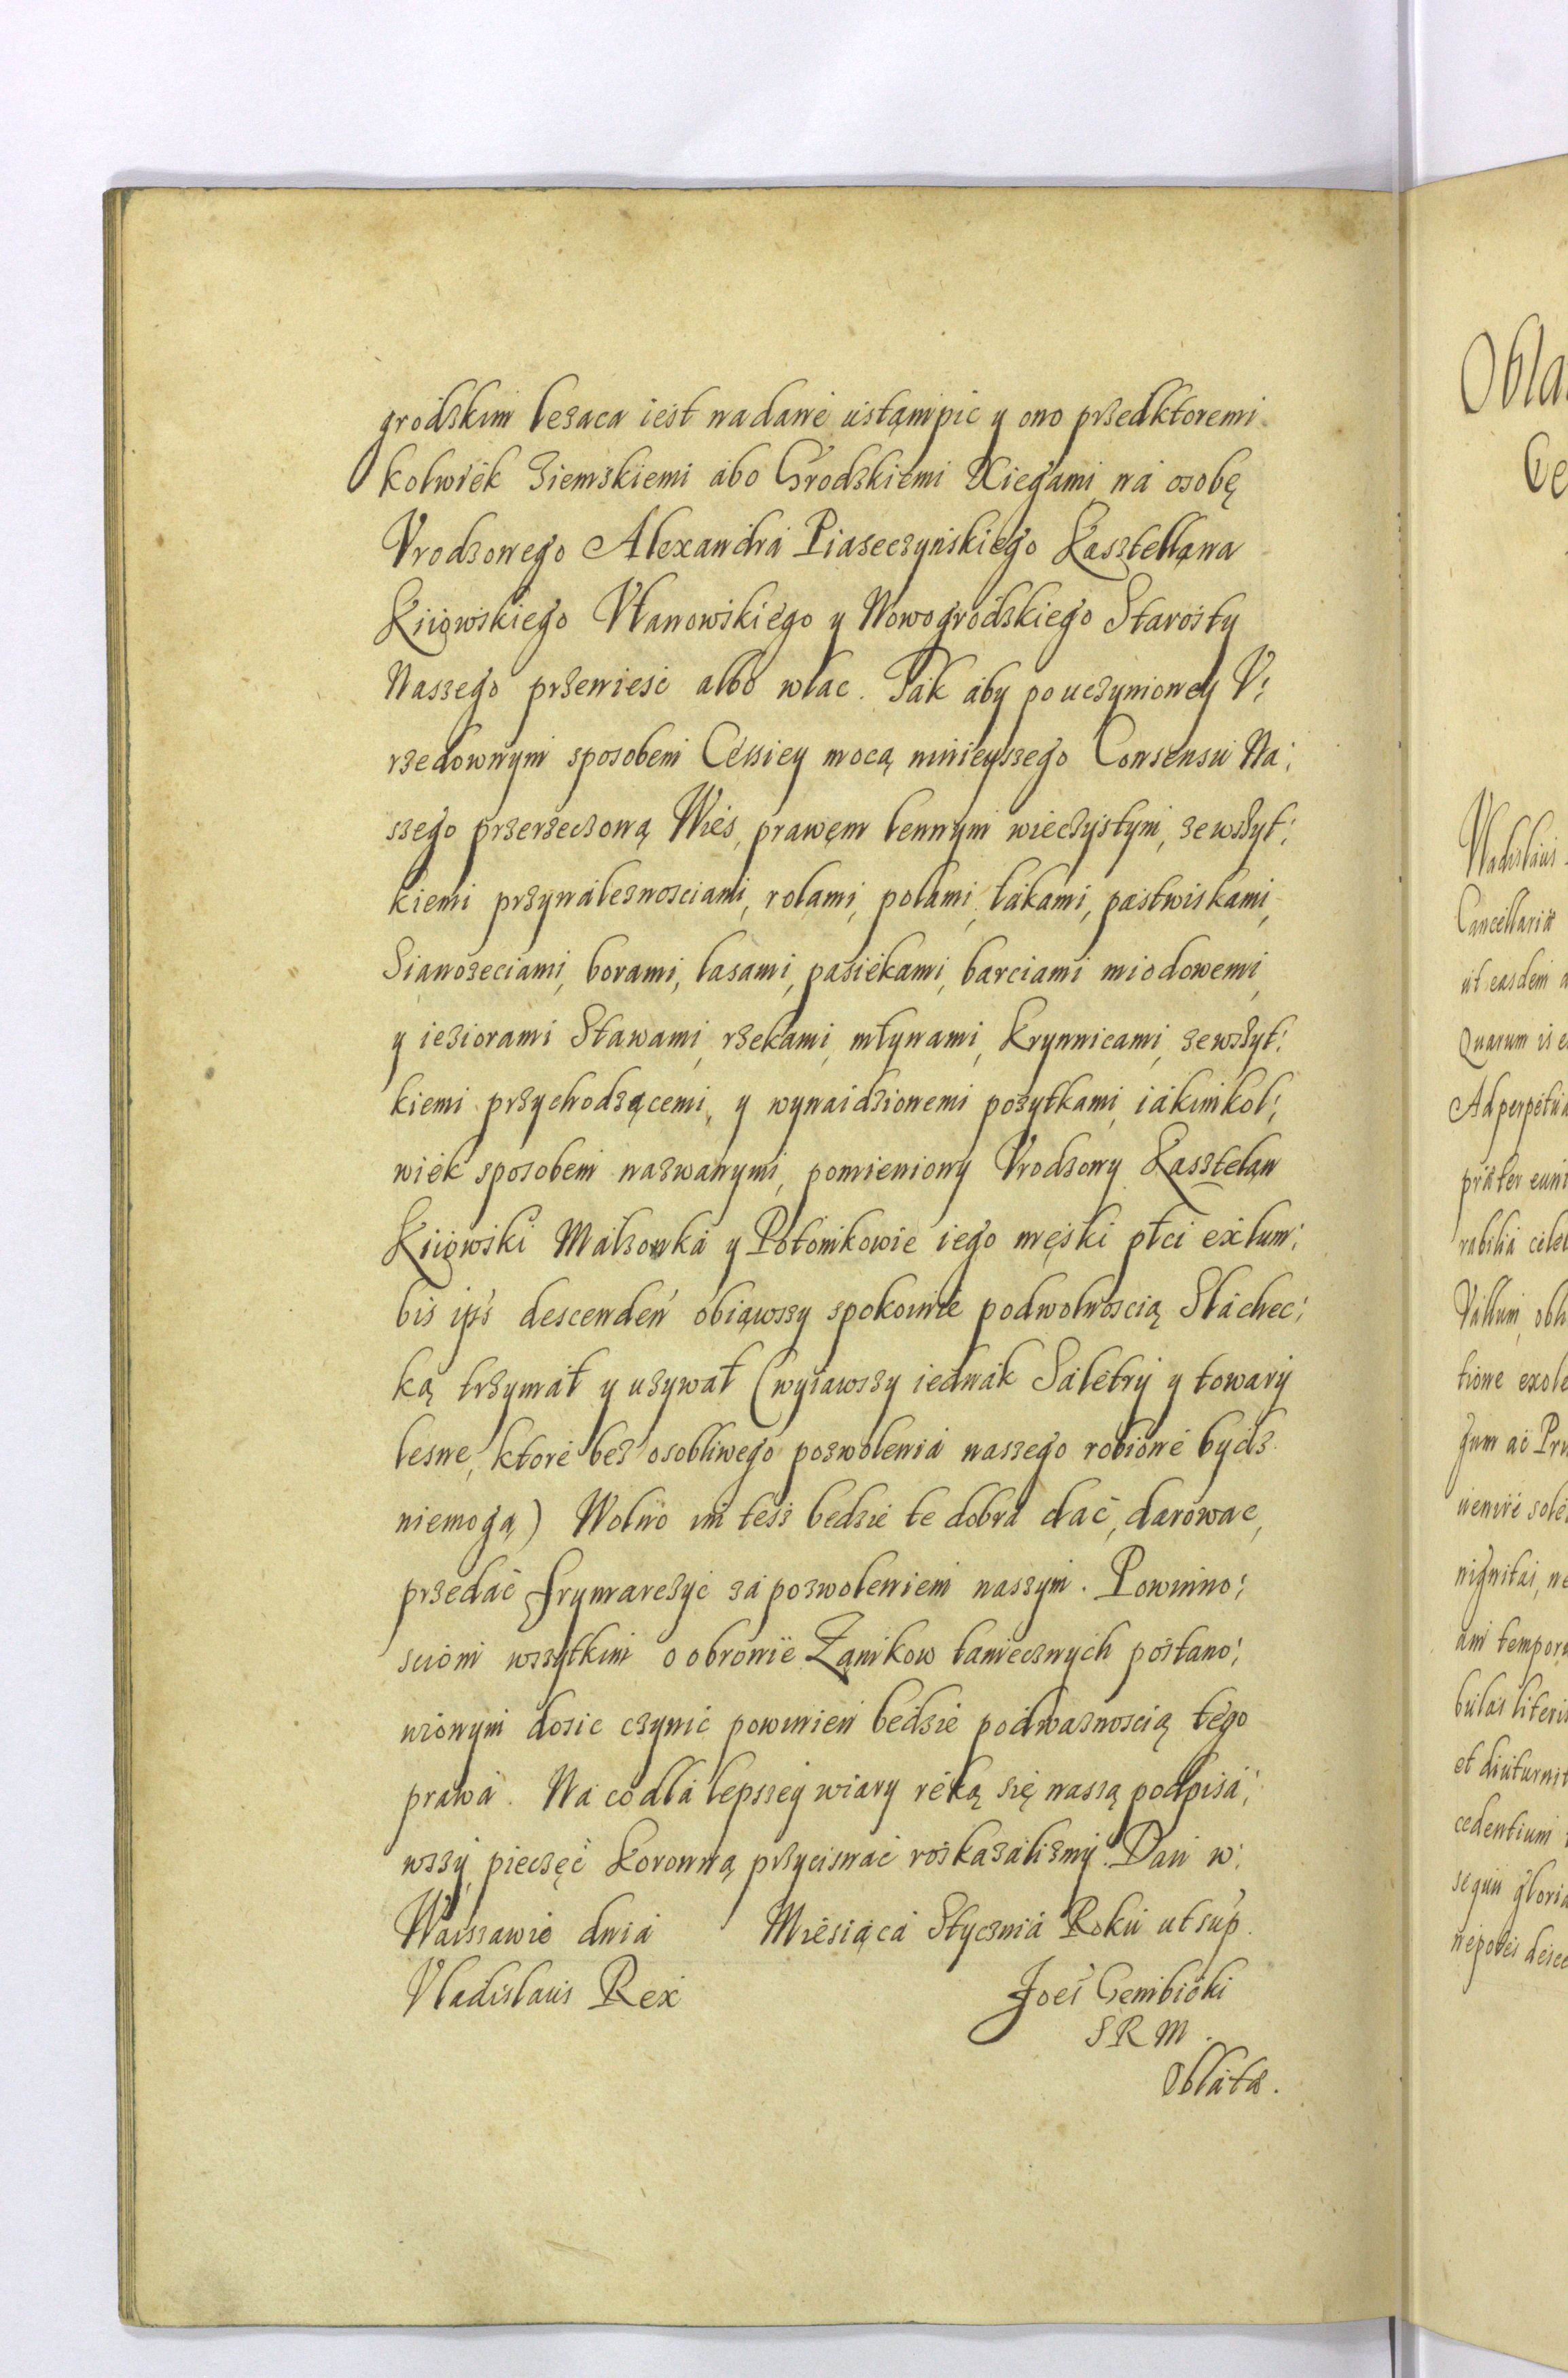 grodzkim lezaca iest nadane ustąmpic y ono przedktoremi
kolwiek Ziemskiemi abo Grodzkiemi Xięgami na osobę
Vrodzonego Alexandra Piaseczynskiego Kasztelląna
Kiiowskiego Vlanowskiego y Nowogrodzkiego Starosty
Naszego przeniesc albo wlac. Tak aby po uczynioney V:
rzedownym sposobem Cessiey mocą ninieyszego Consensu Na:
szego przerzeczoną Wies, prawęm lennym wieczystym, zewszyt:
kiemi przynaleznosciami, rolami, polami, łąkami, pastwiskami,
Sianozeciami, borami, lasami, pasiekami, barciami miodowemi,
y ieziorami Stawami, rzekami, młynami, Krynnicami, zewszyt:
kiemi przychodzącemi, y wynaidzionemi pozytkami, iakimkol:
wiek sposobem nazwanymi, pomieniony Vrodzony Kaszteląn
Kiiowski Małzonka y Potomkowie iego męski płci exlum:
bis ips descenden obiąwszy spokoinie podwolnoscią Slachec:
ką trzymał y uzywał (wyiawszy iednak Saletry y towary
lesne, ktore bez osobliwego pozwolenia naszego robione bydz
niemogą) Wolno im tesz bedzie te dobra dać, darowac,
przedać frymarczyc za pozwoleniem naszym. Powinno:
sciom wszytkim o obronie Zamkow tamecznych postano:
wionym dosic czynic powinien bedzie podwaznoscią tego
prawa. Na co dla lepszey wiary ręką się naszą podpisa:
wszy, pieczęć Koronną przycisnąć roskazalismy. Dan w:
Warszawie dnia Miesiąca Stycznia Roku ut sup.
Vladislaus Rex Joes Gembicki
S R M.
Oblata.
Obla
Ce
Vladislaus
Cancellaria
ut easdem a
Quarum is e
Ad perpetua
præter euni
rabilia cele
Vallum, obli
tione exole
gum ac Pri
uenire sole
nignitai, ne
am tempora
bulas literis
et diuturnit
cedentium
sequii gloria
nepotes desce